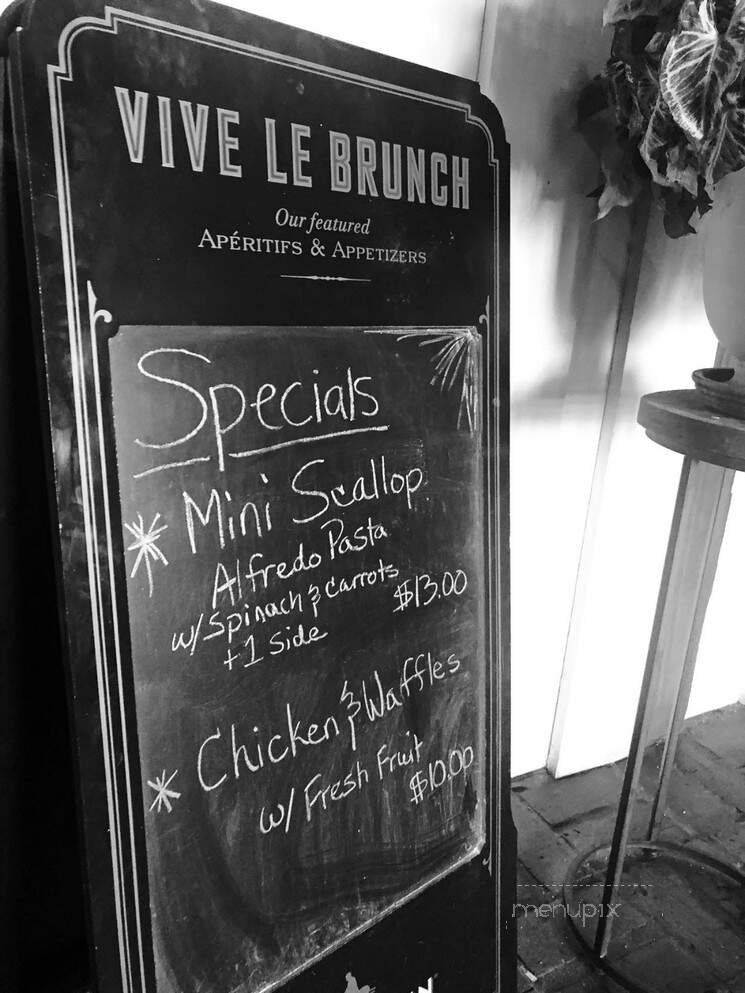 VIVE LE BRUNCH
Our featured
APÉRITIFS & APPETIZERS
Specials
* Mini Scallop
Alfredo Pasta
w/ Spinach & carrots
+1 Side
$13.00
* Chicken & Waffles
w/ Fresh Fruit
$10.00
menupix